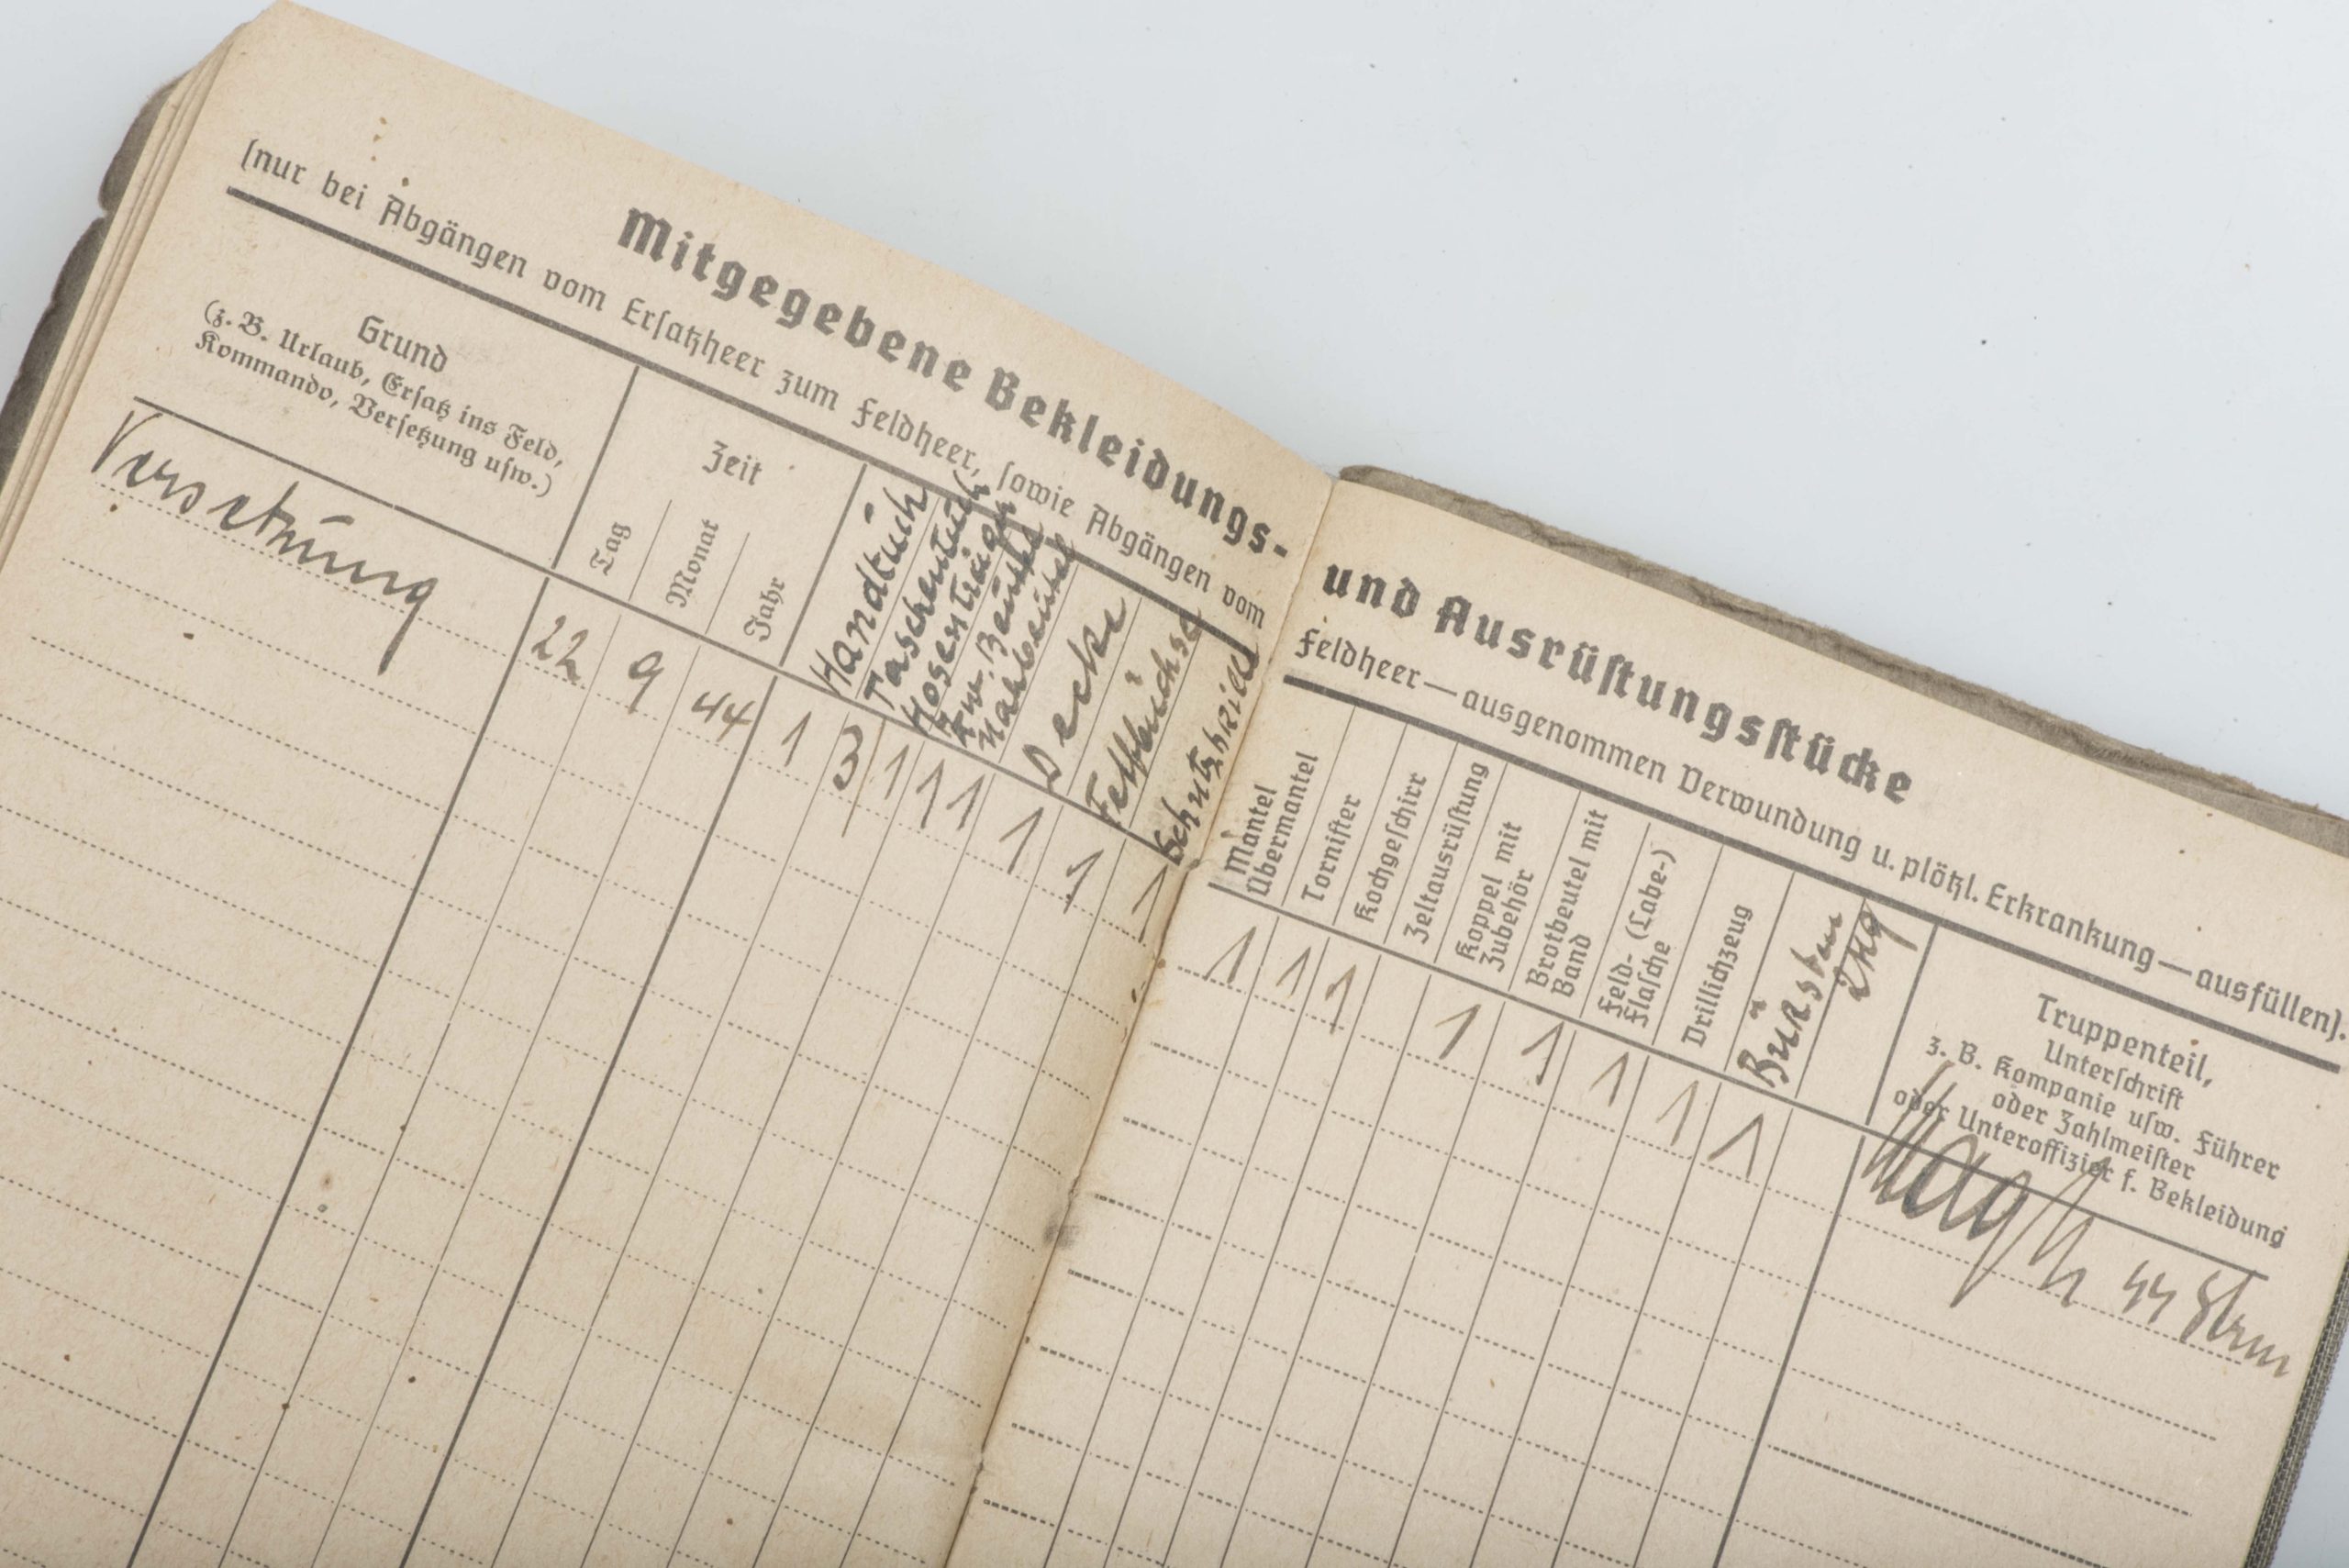 Mitgegebene Bekleidungs-
(nur bei Abgängen vom Ersatzheer zum Feldheer, sowie Abgängen vom
Grund
(z. B. Urlaub, Ersatz ins Feld,
Kommando, Versetzung usw.)
Zeit
Tag
Monat
Jahr
Handtuch
Taschentuch
Hosenträger
Decke
Fettbüchse
Schutzbrille
Versetzung 22 9 44 1 3 1 1 1 1 1 1
und Ausrüstungsstücke
Feldheer — ausgenommen Verwundung u. plötzl. Erkrankung — ausfüllen).
Mantel
Übermantel
Tornister
Kochgeschirr
Zeltausrüstung
Koppel mit
Zubehör
Brotbeutel mit
Band
Feld- (Labe-)
Flasche
Drillichzeug
Bürsten
Truppenteil,
Unterschrift
z. B. Kompanie usw. Führer
oder Zahlmeister
oder Unteroffizier f. Bekleidung
1 1 1 1 1 1 1 1